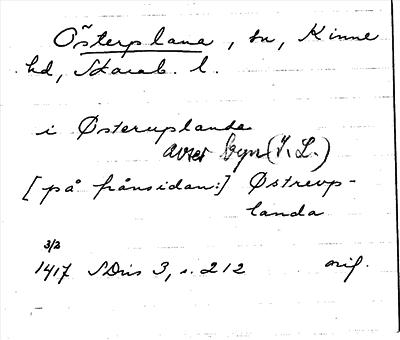 Österplana, sn, Kinne
hd, Skarab. l.
i Østeruplanda
avser byn (I. L.)
[på frånsidan:] Østreup-
landa
3/3
1417 SDns 3, s. 212 orig.